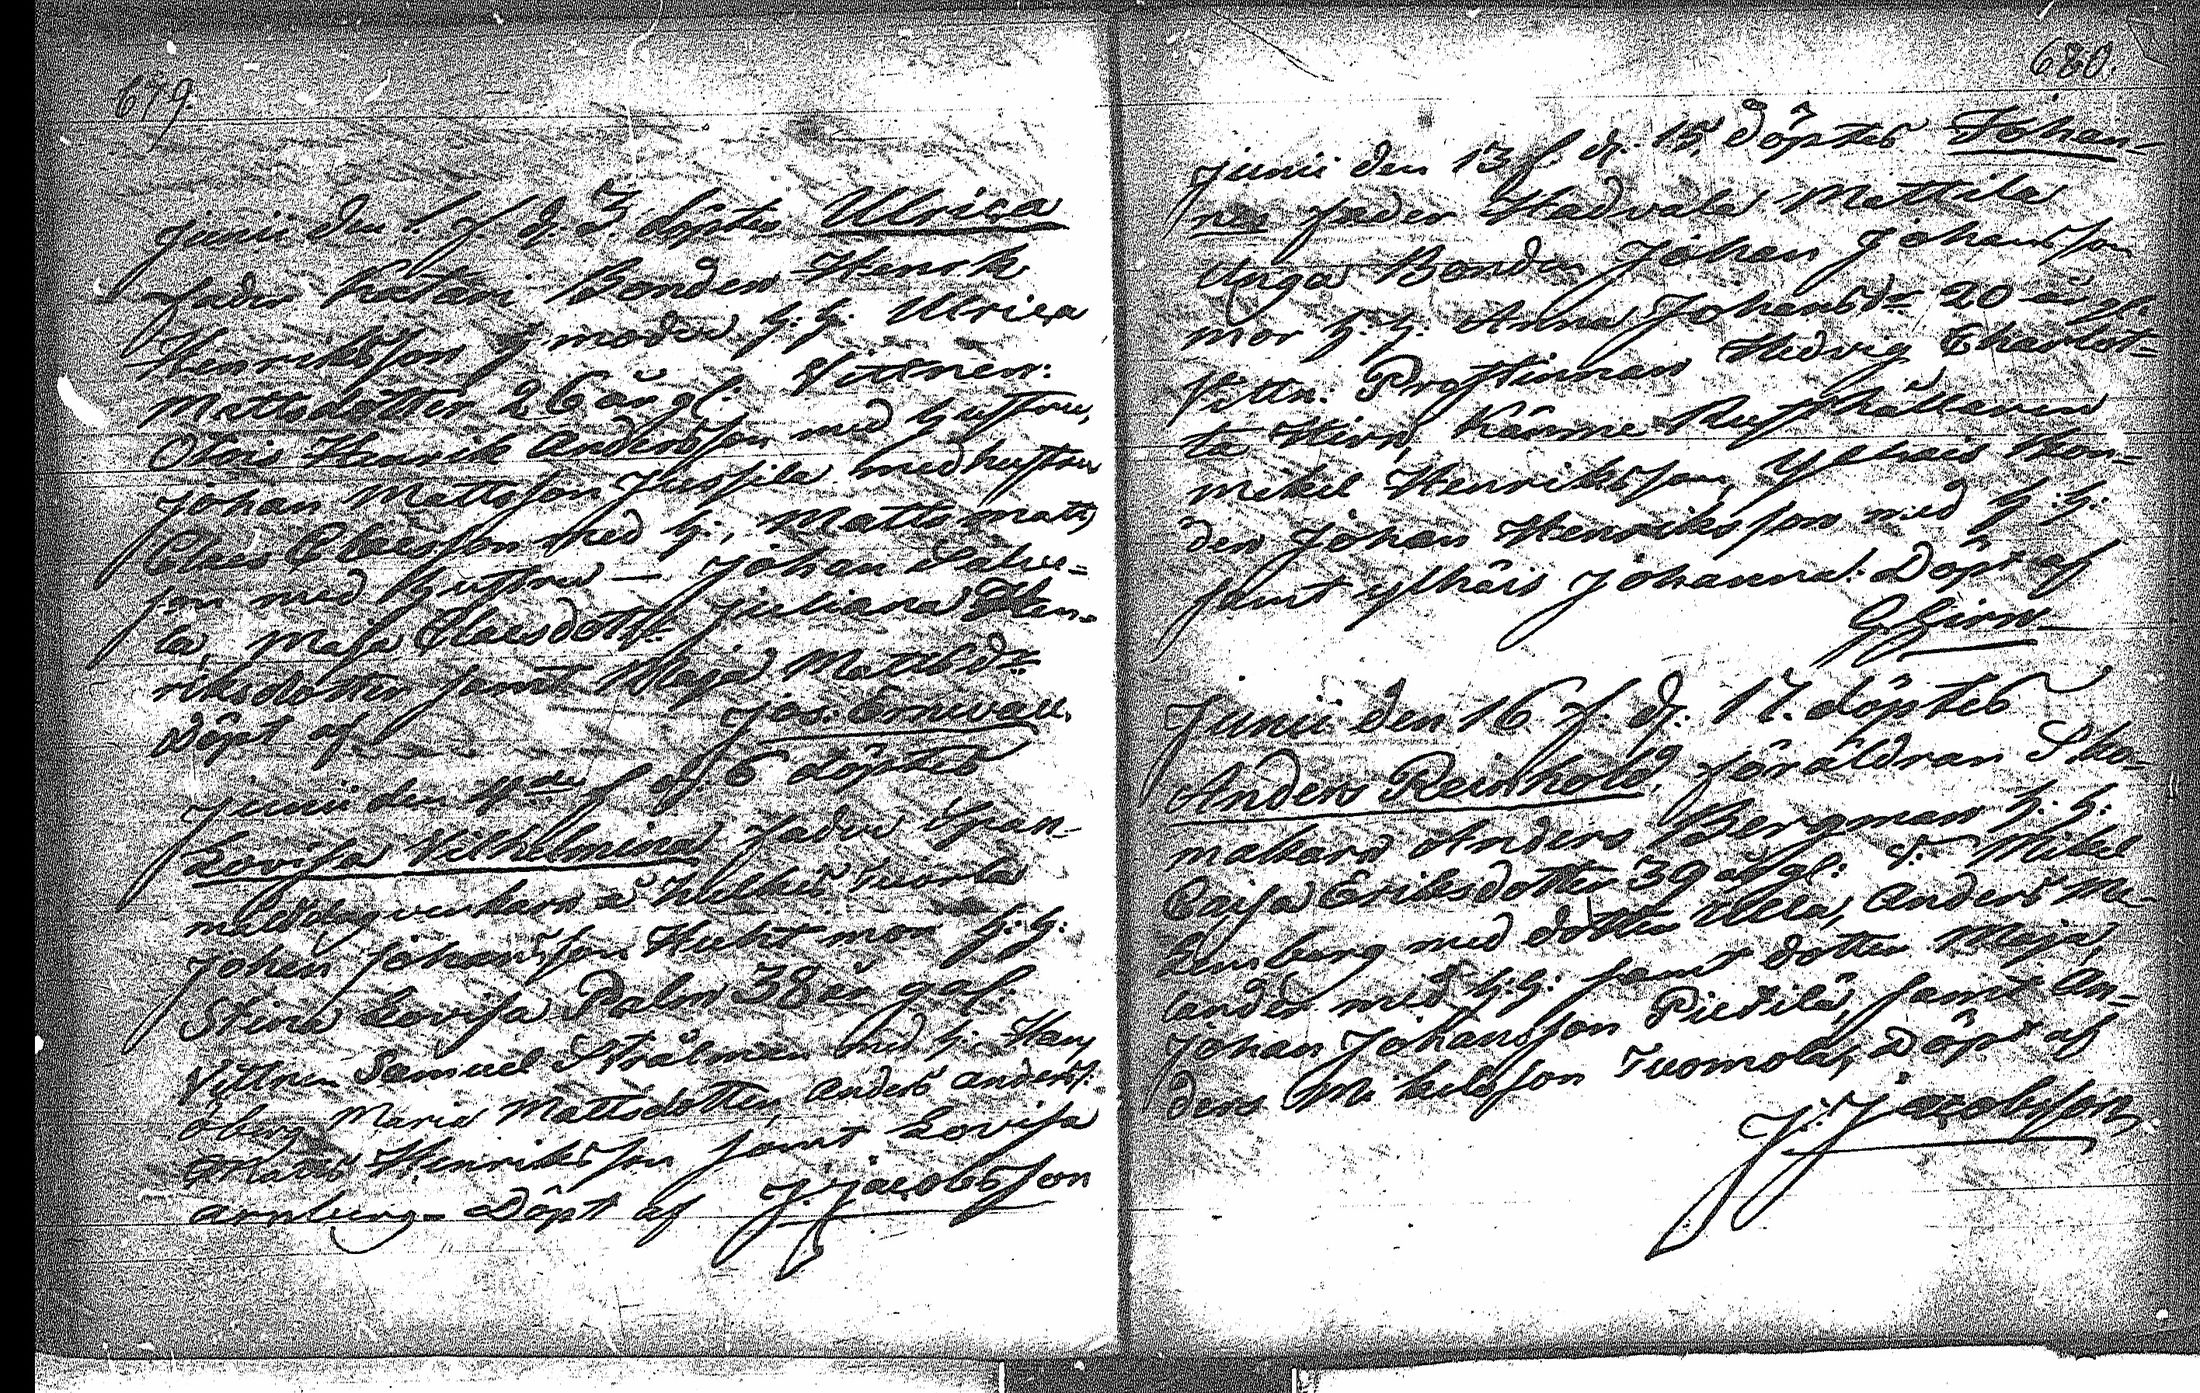 679.
Junii den 1. f. d. 3 döptes Ulrica
fader Katari Bonden Henrik
Henriksson moder h: h: Ulrica
Mattsdotter 26 år gl. Vittnen:
Henrik Andersson med hustru,
Johan Mattsson Jussila med hustru
Claes Claesson med h:, Matts Matts
son med hustru — Johan
la, Maja Claesdottr Juliana Hen-
riksdotter samt Maja Mattsdr
Döpt af Jos: Ernwall.
Junii den 4de f. d. 6 döptes
Lovisa Vilhelmina fader Span-
å
Johan Johansson mor h: h:
Stina Lovisa Palm 38 år gal:
Vittnen Samuel Strålman med h:
öberg Maria Mattsdotter, Anders Anderss:
Matts Henriksson samt Lovisa
Arnberg - Döpt af J. Jacobsson
680.
Junii den 13 f. d. 15 döptes Johan-
nes fader Hadvala Mattila
Unga Bonden Johan Johansson
mor h: h: Anna Johansdr 20 år gl.
Vittn. Prostinnan Hedvig Charlot-
ta Hirn, Rusthållaren
Mikel Henriksson, Ylhäis Bon-
den Johan Henriksson med h: h:
samt Ylhäis Johanna: Döpt af
G Hirn
Junii den 16 f. d. 17. döptes
Anders Reinhold, föräldran Sko-
makarn Anders Bergman h: h:
Caisa Eriksdotter 39 år gl: V. Mikel
Lemberg med dotter Ulla, Anders Ne-
lander med h: h: samt dotter Maja,
Johan Johansson Piedilä, samt An-
ders Mikelsson Tuomola, Döpt af
J: Jacobsson